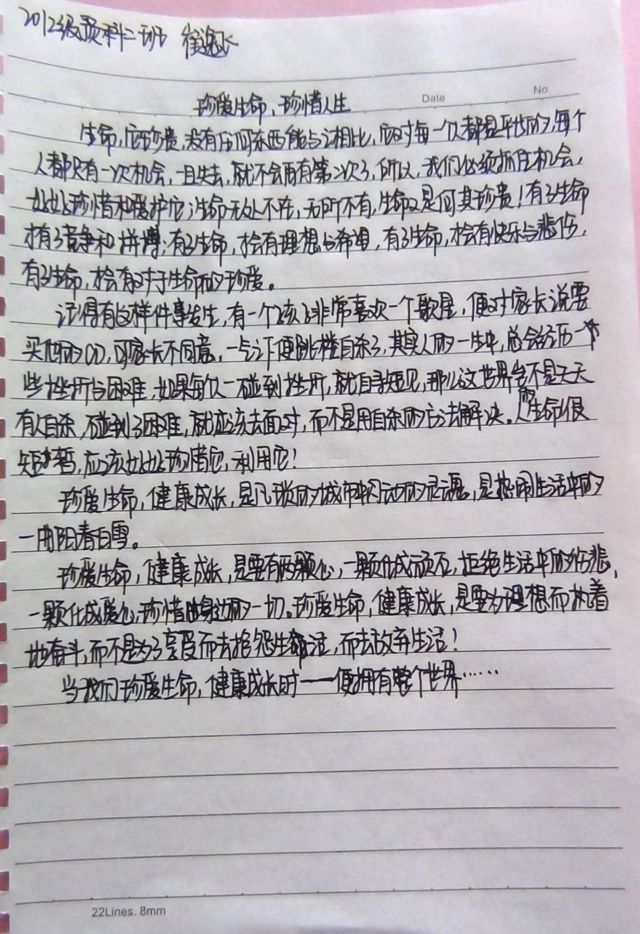 2012级预科二班 崔逸飞
Date No
珍爱生命,珍惜人生
生命,它珍贵,没有任何东西能与之相比,它对每一人都是平也的,每个
人都只有一次机会,一旦失去,就不会再有第二次了,所以,我们必须抓住机会,
处处珍惜和爱护它;生命无处不在,无所不有,生命又是何其珍贵!有了生命
才有了竞争和拼搏;有了生命,才会有理想与希望,有了生命,才会有快乐与悲伤,
有了生命,才会有对于生命的珍爱。
记得有这样件事发生,有一个孩子非常喜欢一个歌星,便对家长说要
买他的CD,可家长不同意,一气之下便跳楼自杀了,其实人的一生中,总会经历一
些挫折与困难,如果每次一碰到挫折,就自寻短见,那么这世界岂不是天天
有人自杀,碰到了困难,就应该去面对,而不是用自杀的方法解决。人的生命很
短暂,应该处处珍惜它,利用它!
珍爱生命,健康成长,是凡琐的城市中闪动的灵魂,是热闹生活中的
一曲阳春白雪。
珍爱生命,健康成长,是要有两颗心,一颗化成顽石,拒绝生活中的伤悲,
一颗化成爱心,珍惜身边的一切。珍爱生命,健康成长,是要为理想而执着
地奋斗,而不是为了享受而去抱怨生活,而去放弃生活!
当我们珍爱生命,健康成长时——便拥有整个世界……
22Lines. 8mm